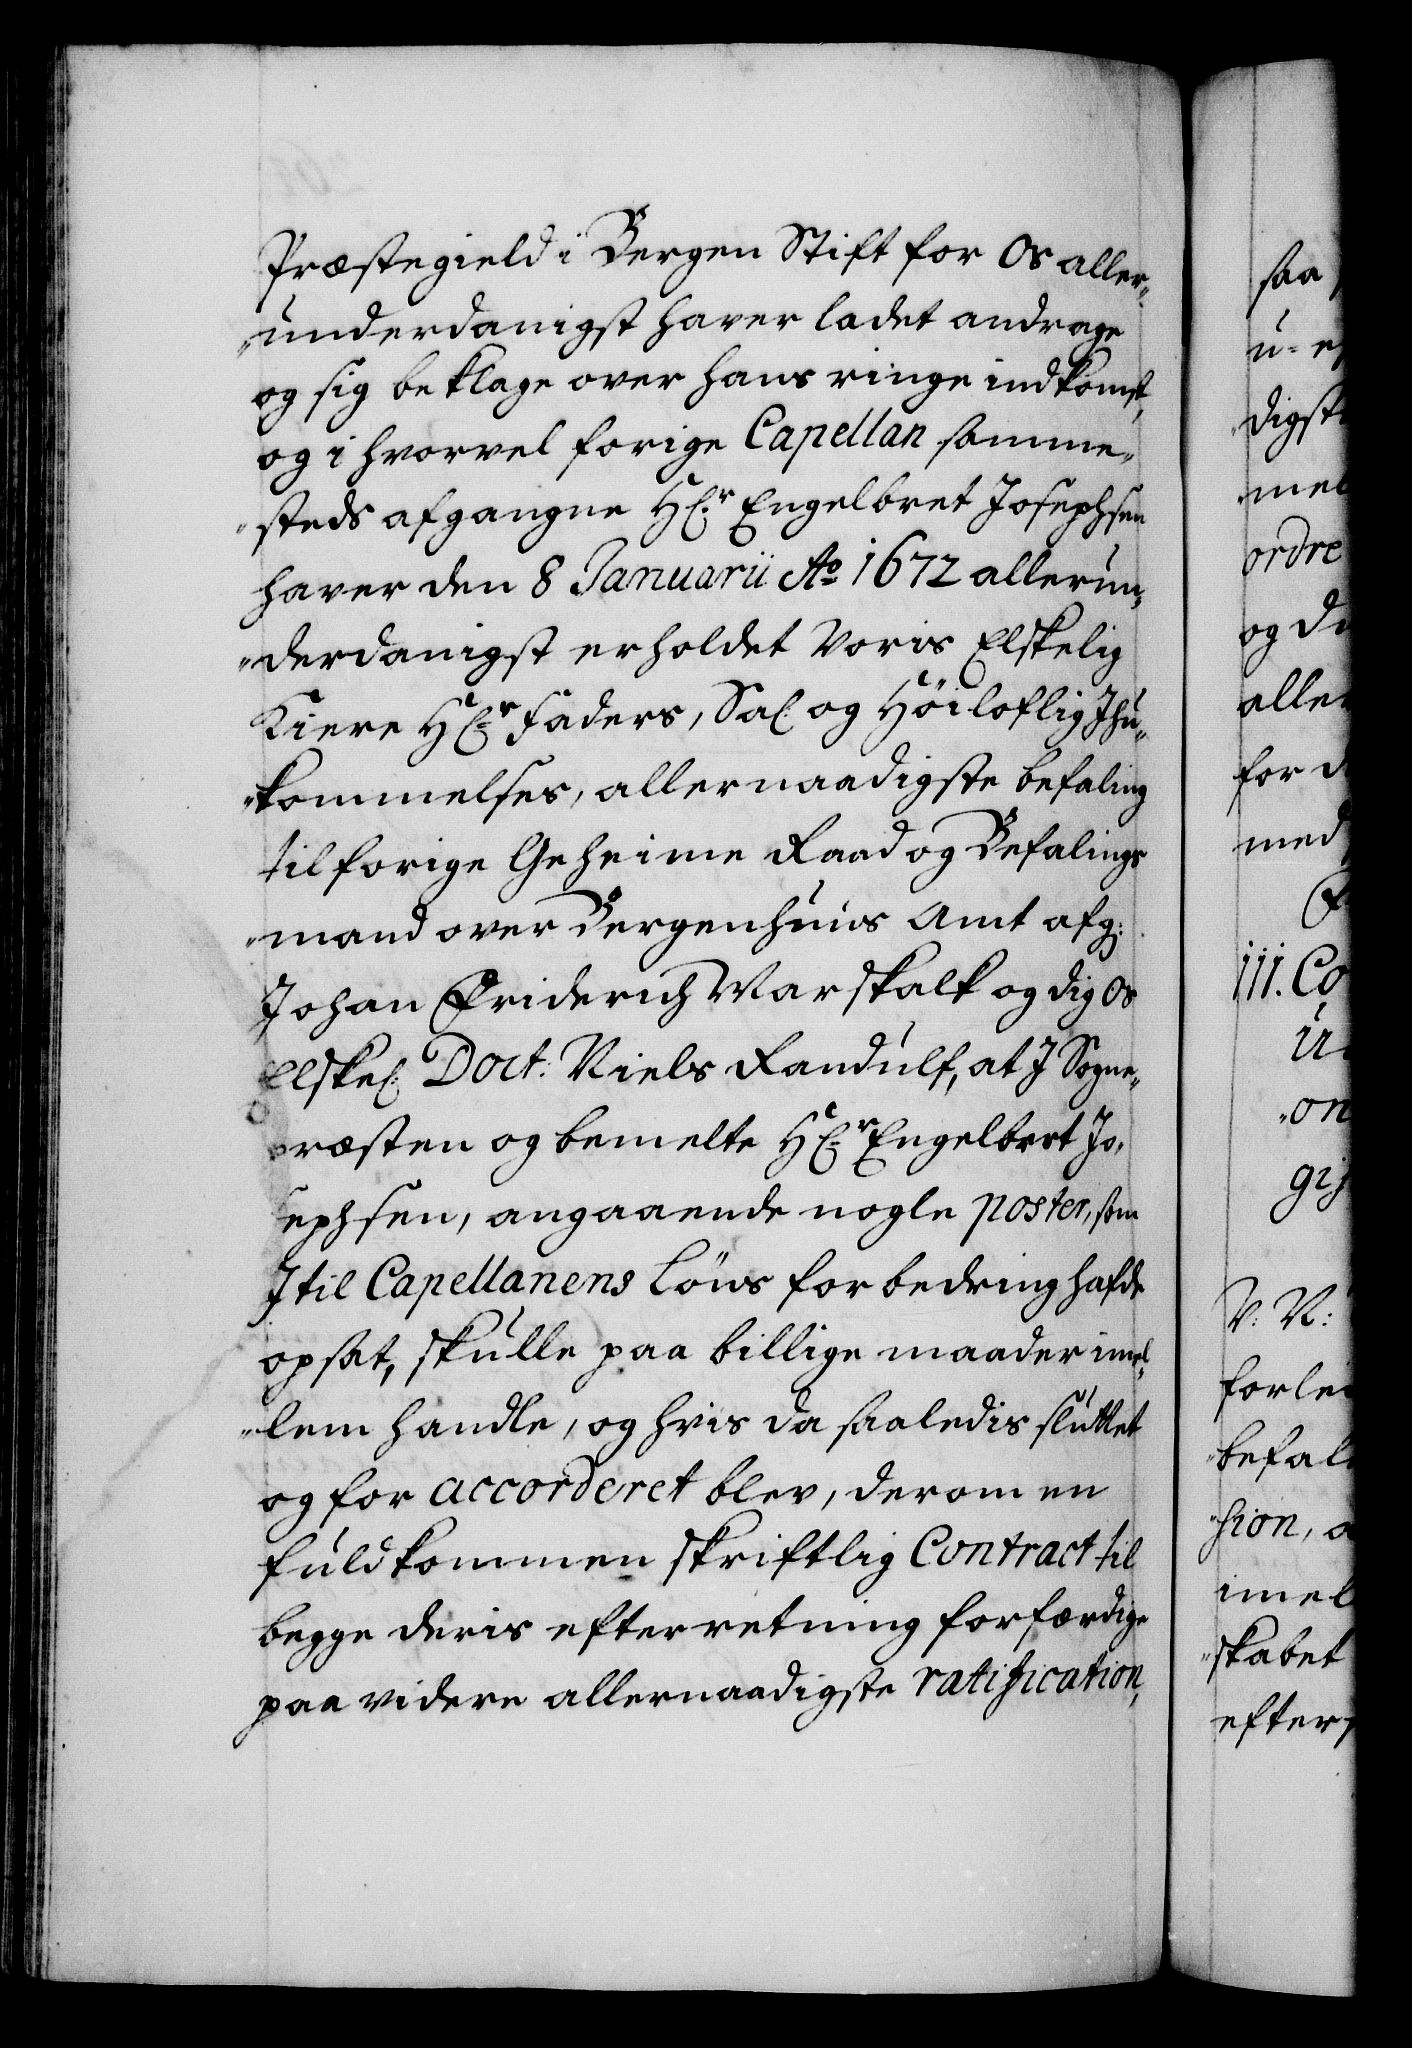 Præstegield i Bergen Stift for Os aller„
„underdanigst haver ladet andrage
og sig beklage over hans ringe indkomst,
og i hvorvel forige Capellan samme„
„steds afgangne Hr. Engelbret Josephsen
haver den 8 Januarii Ao 1672 allerun„
„derdanigst erholdet Voris Elskelig
Kiere Hr. Faders, Sal. og Høiloflig Ihu„
„kommelses, allernaadigste befaling
til forige Geheime Raad og Befalings
„mand over Bergenhuus Amt afg:
Johan Friderich Marskalk og dig Os
Elskel. Doct: Niels Randulf, at I Sogne„
præsten og bemelte Hr. Engelbert Jo„
sephsen, angaaende nogle poster, som
I til Capellanens Løns forbedring hafde
opsat, skulle paa billige maader imel„
„lem handle, og hvis da saaledis sluttet
og for accorderet blev, derom en
fuldkommen skriftlig Contract til
begge deris efterretning forfærdige
paa videre allernaadigste ratification,
saa
u-
digst
mel
ordre
og
aller
for
med
iii. Co
on
gis
V: N:
befal
sion,
imel
skabet
efter